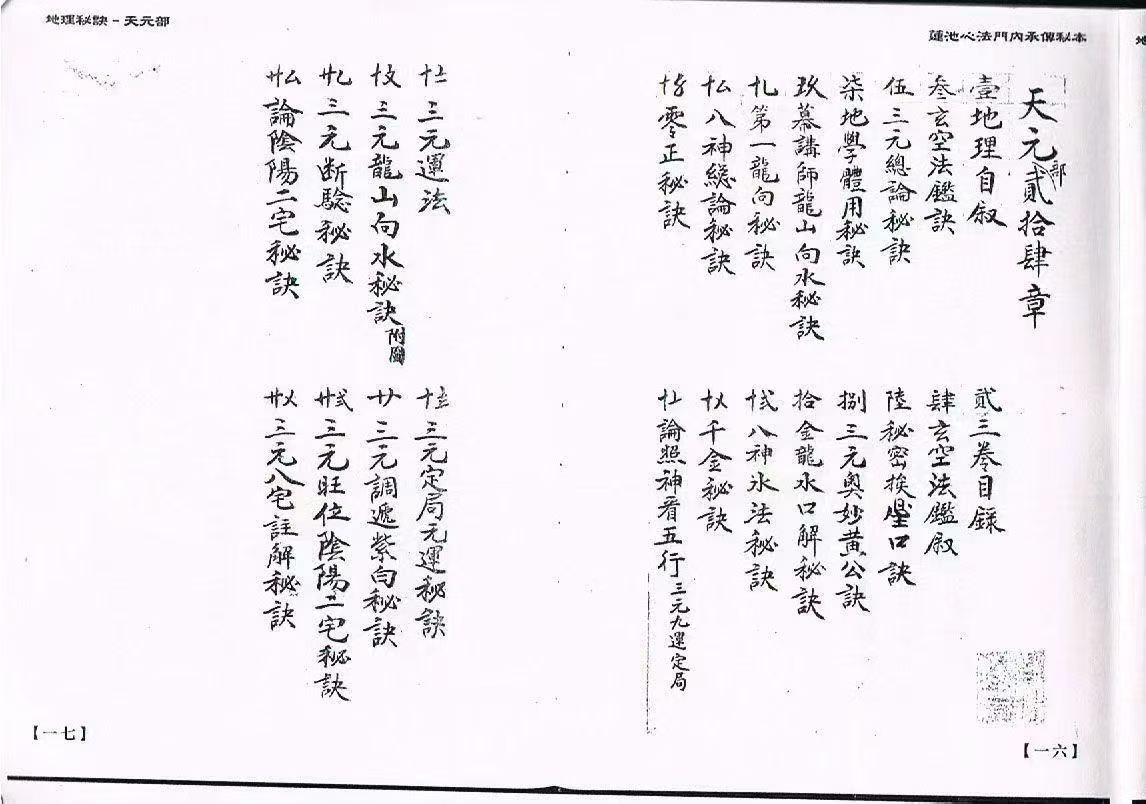 地理秘訣－天元部
蓮池心法門內承傳秘本
天元部貳拾肆章
壹地理自叙
貳三卷目錄
叁玄空法鑑訣
肆玄空法鑑叙
伍三元總論秘訣
陸秘密挨星口訣
柒地學體用秘訣
捌三元奧妙黃公訣
玖慕講師龍山向水秘訣
拾金龍水口解秘訣
第一龍向秘訣
十弍八神氷法秘訣
十厶八神總論秘訣
十乂千金秘訣
零正秘訣
十〦論照神看五行
三元九運定局
十〧三元運法
十〨三元定局元運秘訣
十攵三元龍山向水秘訣附圖
廿三元調遞紫白秘訣
三元断驗秘訣
廿弍三元旺位陰陽二宅秘訣
廿厶論陰陽二宅秘訣
廿乂三元八宅註解秘訣
【一六】
【一七】